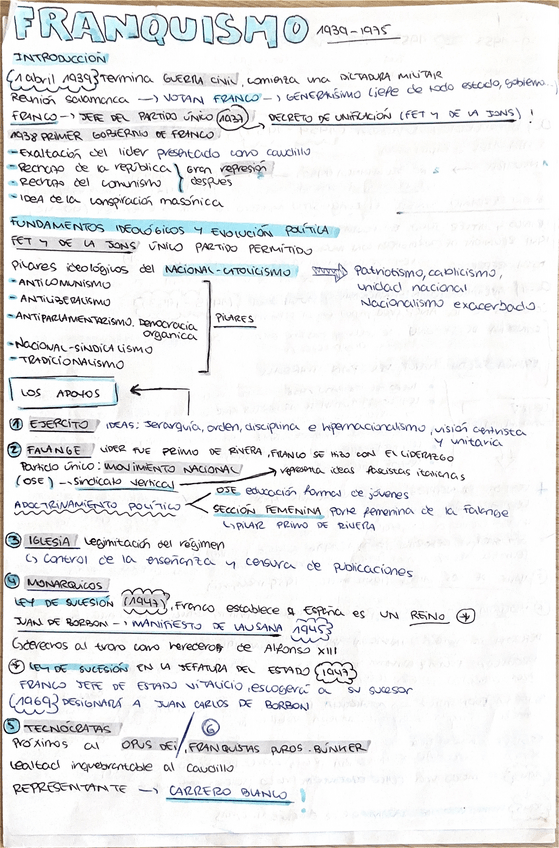 FRANQUISMO 1939-1975
INTRODUCCIÓN
{1 abril 1939} Termina GUERRA CIVIL, comienza una DICTADURA MILITAR
Reunión salamanca —> VOTAN FRANCO —> GENERALÍSIMO (Jefe de todo estado, gobierno...)
FRANCO —> JEFE DEL PARTIDO ÚNICO (1937) —> DECRETO DE UNIFICACIÓN (FET Y DE LA JONS) !
1938 PRIMER GOBIERNO DE FRANCO
- Exaltación del líder presentado como caudillo
- Rechazo de la república } Gran represión
- Rechazo del comunismo } después
- Idea de la conspiración masónica
FUNDAMENTOS IDEOLÓGICOS Y EVOLUCIÓN POLÍTICA
FET Y DE LA JONS ÚNICO PARTIDO PERMITIDO
Pilares ideológicos del NACIONAL-CATOLICISMO => Patriotismo, catolicismo,
unidad nacional
Nacionalismo exacerbado
- ANTICOMUNISMO
- ANTILIBERALISMO
- ANTIPARLAMENTARISMO. Democracia
organica
PILARES
- NACIONAL-SINDICALISMO
- TRADICIONALISMO
LOS APOYOS
① EJERCITO / IDEAS: Jerarquía, orden, disciplina e hipernacionalismo, visión centrista
y unitaria
② FALANGE LIDER FUE PRIMO DE RIVERA, FRANCO SE HIZO CON EL LIDERAZGO
Partido único: MOVIMIENTO NACIONAL
(OSE) —> Sindicato vertical —> representa ideas fascistas italianas
ADOCTRINAMIENTO POLÍTICO < OJE educación formal de jóvenes
SECCIÓN FEMENINA parte femenina de la Falange
↳ PILAR PRIMO DE RIVERA
③ IGLESIA Legitimación del régimen
↳ Control de la enseñanza y censura de publicaciones
④ MONARQUICOS
LEY DE SUCESIÓN {1947}, Franco establece q España es UN REINO (*)
JUAN DE BORBON —> MANIFIESTO DE LAUSANA {1945}
↳ derechos al trono como heredero de Alfonso XIII
(*) LEY DE SUCESIÓN EN LA JEFATURA DEL ESTADO {1947}
FRANCO JEFE DE ESTADO VITALICIO, escogerá a su sucesor
{1969} DESIGNARÁ A JUAN CARLOS DE BORBON
⑤ TECNÓCRATAS
Próximos al OPUS DEI / ⑥ FRANQUISTAS PUROS. BÚNKER
Lealtad inquebrantable al caudillo
REPRESENTANTE —> CARRERO BLANCO !